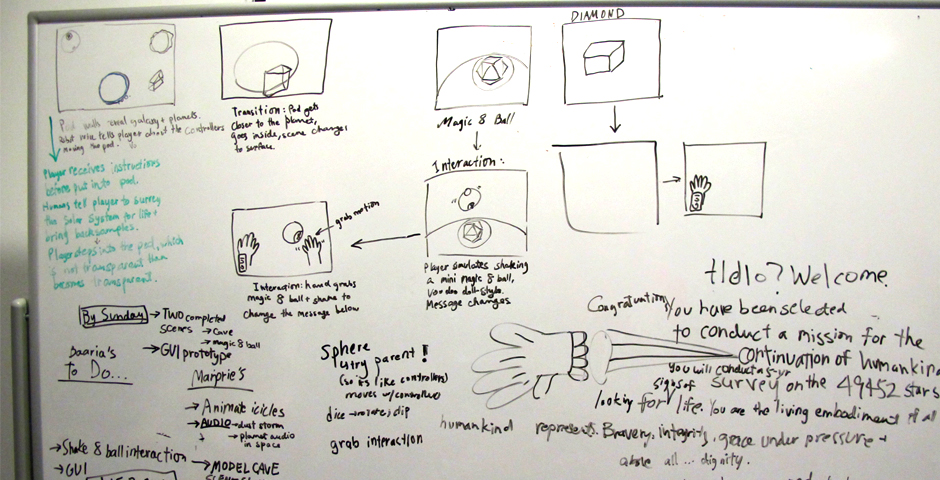 Pod with cool galaxy + planets.
that tells player about the controllers
moving the pod.
Player receives instructions
before put into pod.
Humans tell player to survey
the solar system for life +
bring back samples.
Player steps into the pod, which
if not transparent then
becomes transparent.
Transition: Pod gets
closer to the planet,
goes inside, scene changes
to surface.
Magic 8 Ball
DIAMOND
Interaction:
Player simulates shaking
a mini magic 8 ball,
voodoo doll-style.
Message changes
grab motion
Interaction: hand grabs
magic 8 ball + shake to
change the message below
GUI
By Sunday → Two completed
scenes → Cave
→ magic 8 ball
→ GUI prototype
Baaria's
To Do...
→ Shake 8 ball interaction
→ GUI
Marjorie's
→ Animate icicles
→ AUDIO → dust storm
→ planet audio
in space
→ MODEL CAVE
Sphere
try parent!
(so it's like controller)
moves w/controller
dice → rotate, clip
grab interaction
Hello? Welcome.
Congratuation, You have been selected
to conduct a mission for the
continuation of humankind
You will conduct a 5-yr
survey on the 49452 stars
looking for signs of life. You are the living embodiment of all
humankind represents. Bravery, integrity, grace under pressure +
above all ... dignity.